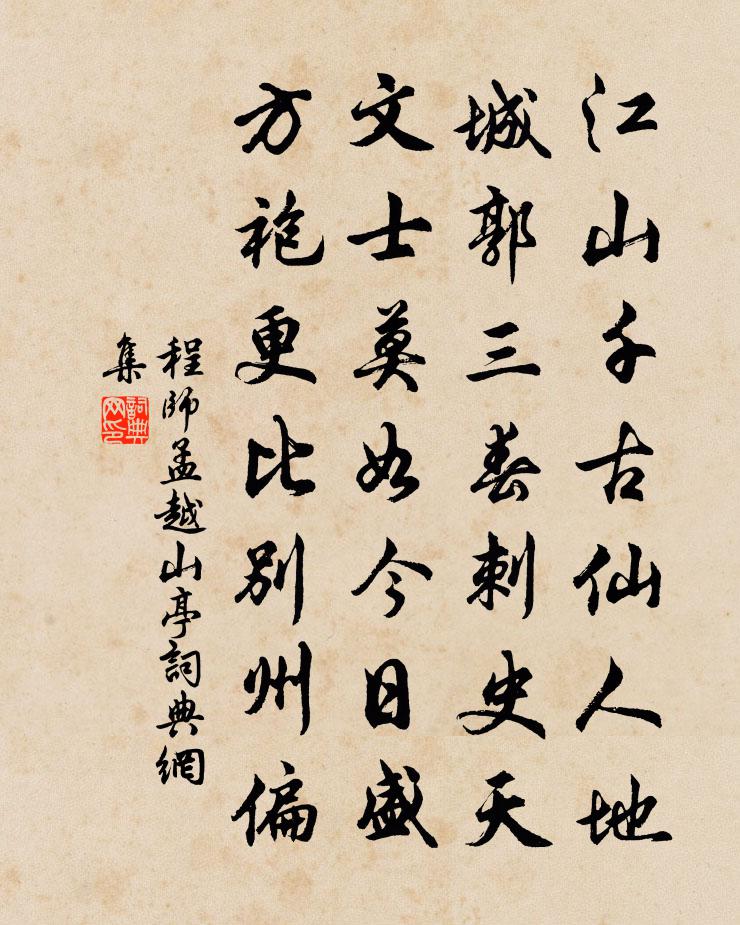 江山千古仙人地
城郭三春刺史天
文士莫如今日盛
方袍更比別州偏
程師孟越山亭詞典網
集
詞典
网印